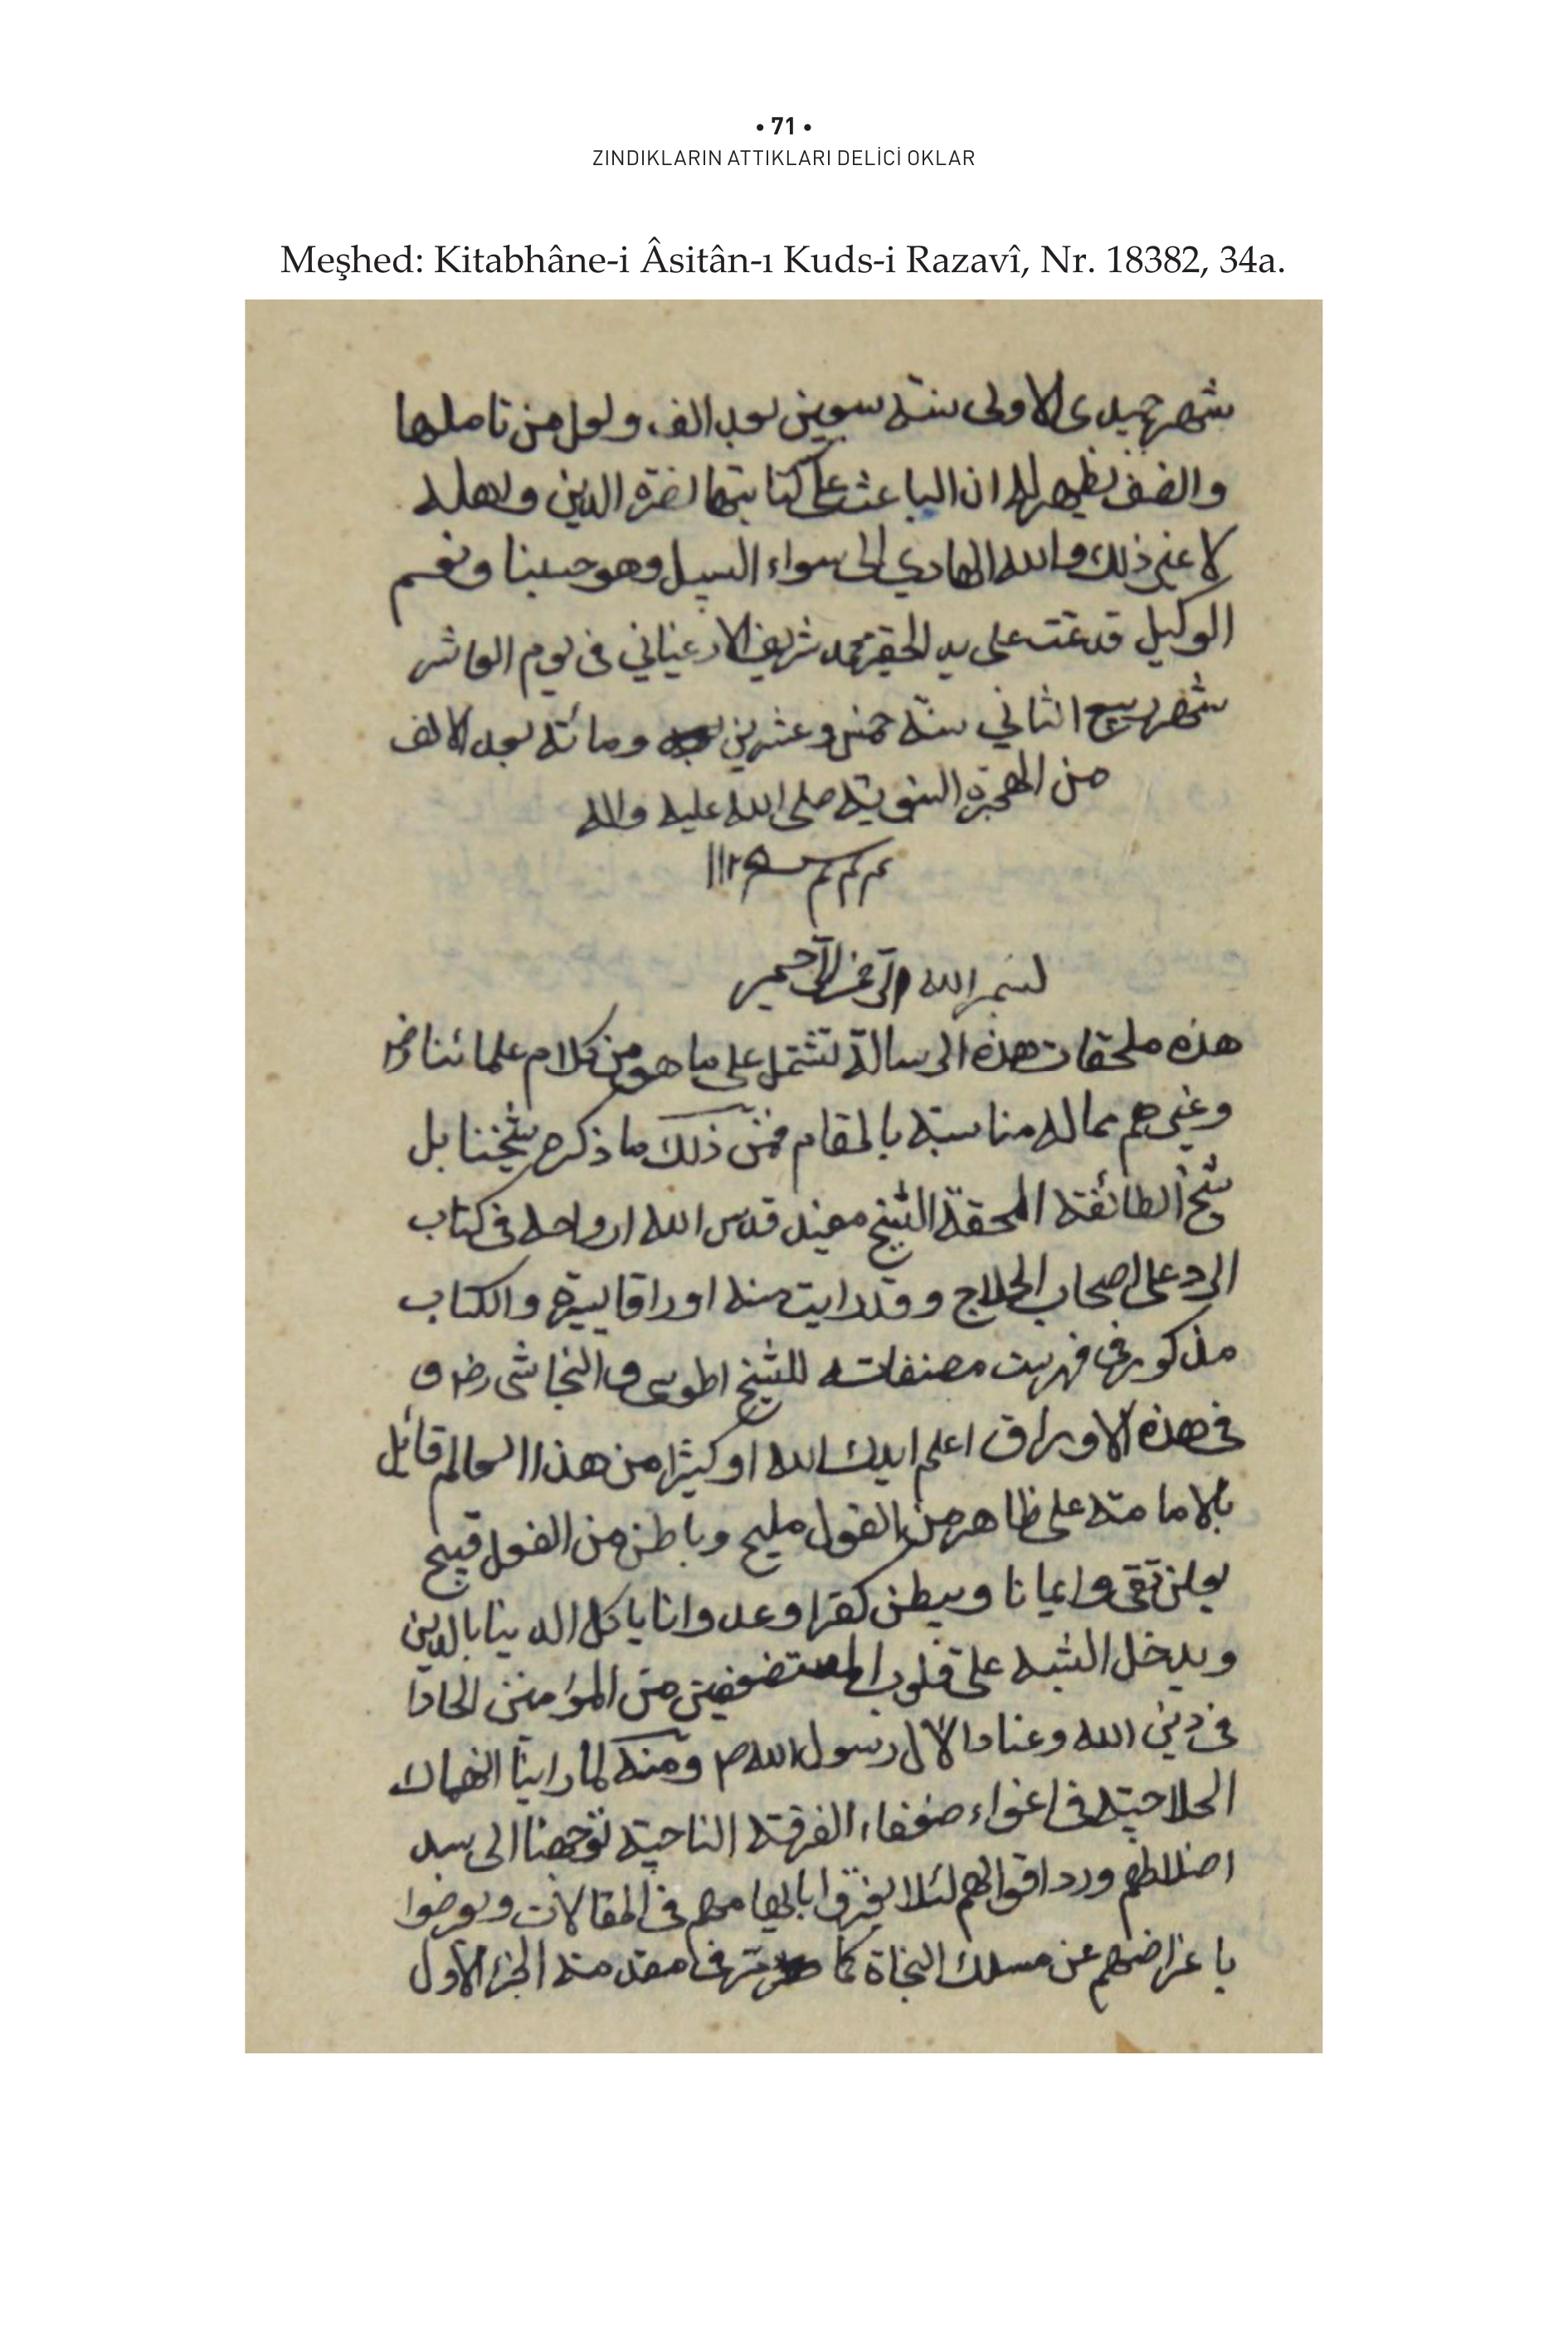 • 71 •
ZINDIKLARIN ATTIKLARI DELİCİ OKLAR
Meşhed: Kitabhâne-i Âsitân-ı Kuds-i Razavî, Nr. 18382, 34a.
شهر جميدى الاولى سنة سبعين بعد الف ولعل من تاملها
وانصف يظهر له ان الباعث على كتابتها نصرة الدين واهله
لا غير ذلك والله الهادي الى سواء السبيل وهو حسبنا ونعم
الوكيل قد تمت على يد الحقير محمد شريف في يوم العاشر
شهر ربيع الثاني سنة خمس وعشرين ومائة بعد الالف
من الهجرة النبوية صلى الله عليه واله
١١٢٥
بسم الله الرحمن الرحيم
هذه ملحقات هذه الرسالة تشتمل على ما هو من كلام علمائنا رض
وغيرهم مما له مناسبة بالمقام فمن ذلك ما ذكره شيخنا بل
شيخ الطائفة المحقة الشيخ مفيد قدس الله ارواحه في كتاب
الرد على اصحاب الحلاج وقد رايت منه اوراقا يسيرة والكتاب
مذكور في فهرست مصنفاته للشيخ اطوسى والنجاشى رض و
في هذه الاوراق اعلم ايدك الله او كثيرا من هذا العالم قائل
بالامامة على ظاهر من القول مليح وباطن من القول قبيح
يعلن تقى وايمانا ويبطن كفرا وعدوانا ياكل الدينا بالدين
ويدخل الشبه على قلوب المستضعفين من المؤمنين الحادا
في دين الله وعنادا لال رسول الله ص ومنه لما راينا انهماك
الحلاجية في اغواء ضعفاء الفرقة الناجية توجهنا الى سد
ورد اقوالهم لئلا يغتروا بايهامهم في المقالات ويعرضوا
باغراضهم عن مسلك النجاة كما في مقدمة الجزء الاول